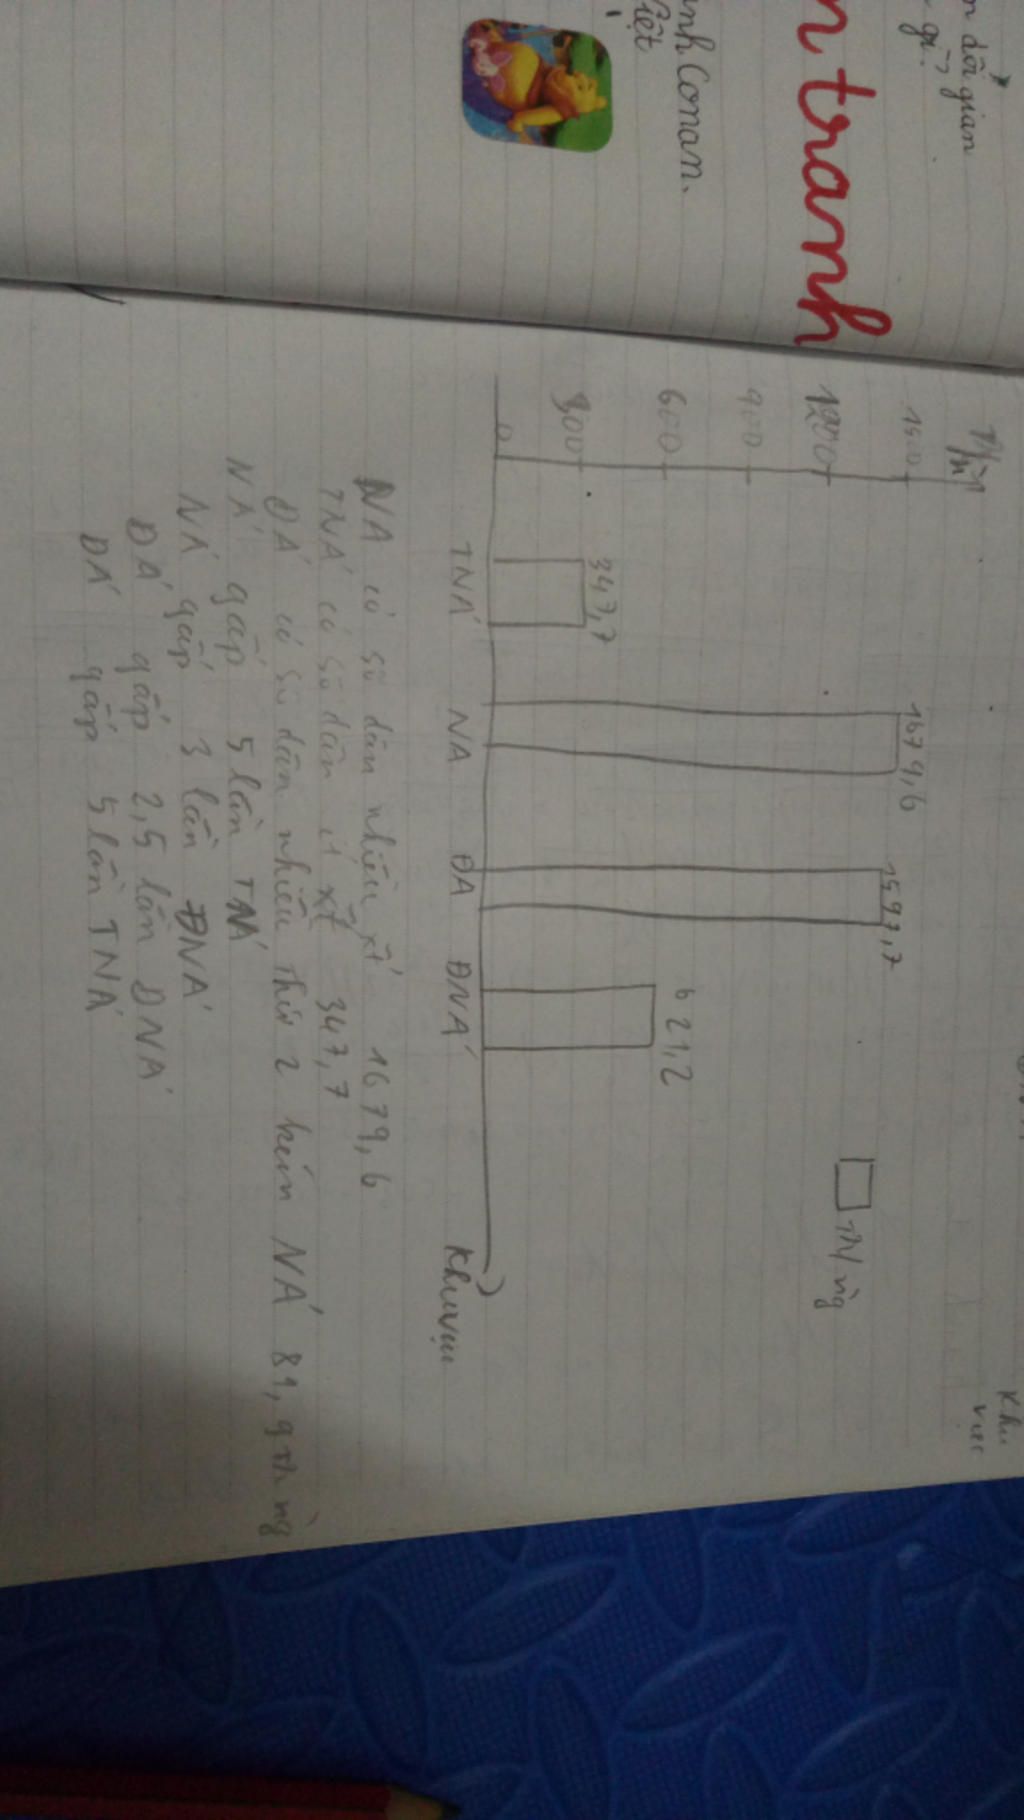 n dối gian
gì?
n tranh
anh Conan.
iệt
Khu
vực
Tr/ng
1500
1200
900
600
300
0
347,7
1679,6
1597,7
621,2
Tr/ng
TNÁ
NA
ĐA
ĐNÁ
Khu vực
NA có số dân nhiều x' 1679,6
TNÁ có số dân ít x' 347,7
ĐÁ có số dân nhiều thứ 2 kém NÁ 81,9 tr ng
NÁ gấp 5 lần TNÁ
NÁ gấp 3 lần ĐNÁ
ĐÁ gấp 2,5 lần ĐNÁ
ĐÁ gấp 5 lần TNÁ